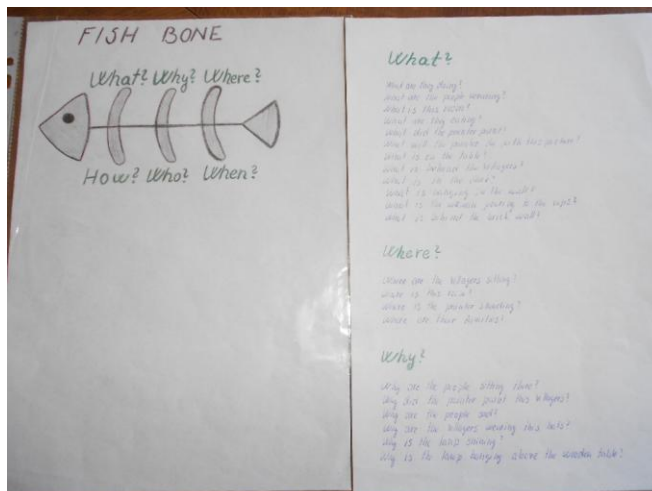 FISH BONE
What? Why? Where?
How? Who? When?
What?
What are they doing?
What are the people wearing?
What is this room?
What are they eating?
What did the painter paint?
What will the painter do with this picture?
What is on the table?
What is behind the villagers?
What is in the
What is hanging in the wall?
What is the woman pouring to the cups?
What is behind the brick wall?
Where?
Where are the villagers sitting?
Where is this room?
Where is the painter standing?
Where are their families?
Why?
Why are the people sitting there?
Why did the painter paint this villagers?
Why are the people sad?
Why are the villagers wearing this hats?
Why is the lamp shining?
Why is the lamp hanging above the wooden table?